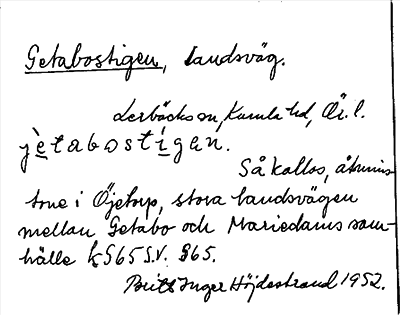 Getabostigen, landsväg.
Lerbäcks sn, Kumla hd, Ör. l.
jètabostígan.
Så kallas, åtmins
tone i Öjetorp, stora landsvägen
mellan Getabo och Mariedams sam-
hälle k 565 S.V. 865.
Britt Inger Höjdestrand 1952.